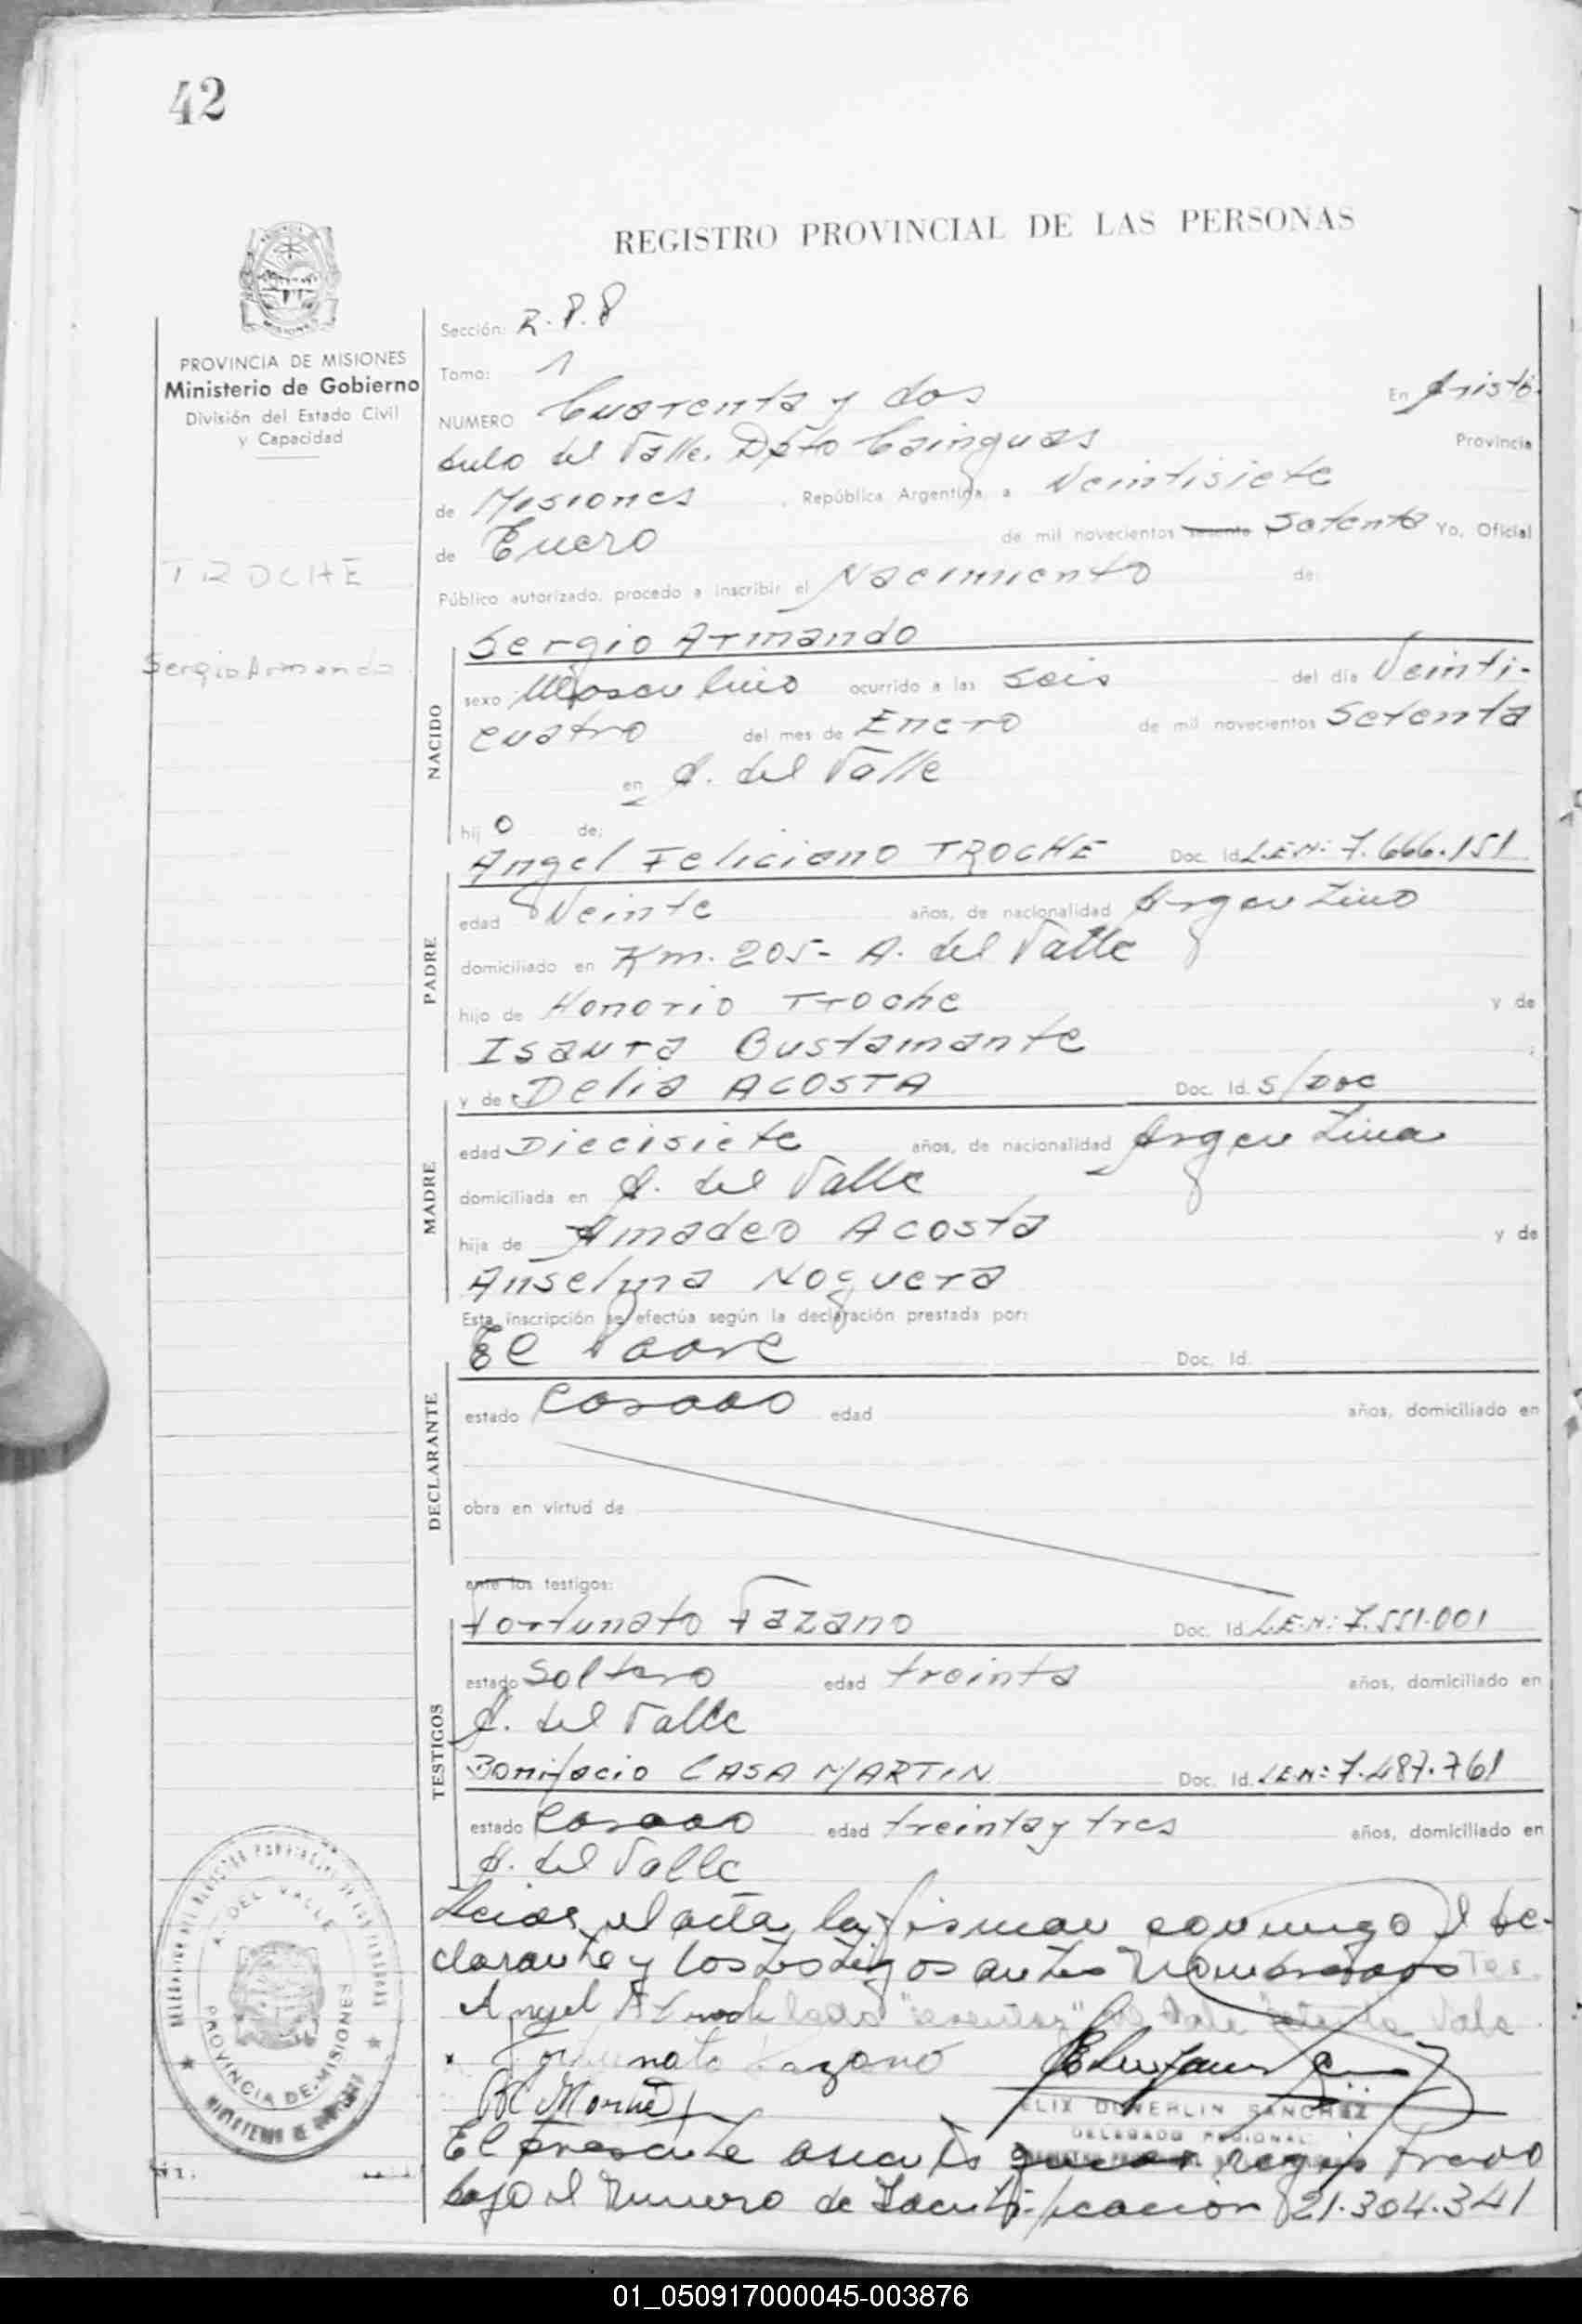 42
REGISTRO PROVINCIAL DE LAS PERSONAS
PROVINCIA DE MISIONES
Ministerio de Gobierno
División del Estado Civil
y Capacidad
TROCHE
Sergio Armando
Sección: R.P.P
Tomo: 1
NUMERO Cuarenta y dos En Aristó-
bulo del Valle. Dpto Cainguas Provincia
de Misiones, República Argentina, a Veintisiete
de Enero de mil novecientos sesenta Setenta Yo, Oficial
Público autorizado, procedo a inscribir el Nacimiento de:
NACIDO
Sergio Armando
sexo Masculino ocurrido a las seis del día Veinti-
cuatro del mes de Enero de mil novecientos Setenta
en A. del Valle
hijo de:
PADRE
Angel Feliciano TROCHE Doc. Id. L.E.N: 7.666.151
edad Veinte años, de nacionalidad Argentino
domiciliado en Km. 205- A. del Valle
hijo de Honorio Troche y de
Isaura Bustamante
MADRE
y de Delia ACOSTA Doc. Id. S/Doc
edad Diecisiete años, de nacionalidad Argentina
domiciliada en A. del Valle
hija de Amadeo Acosta y de
Anselma Noguera
Esta inscripción se efectúa según la declaración prestada por:
DECLARANTE
El Padre Doc. Id.
estado Casado edad años, domiciliado en
obra en virtud de
ante los testigos:
TESTIGOS
Fortunato Fazano Doc. Id. L.E.N: 7.551.001
estado Soltero edad treinta años, domiciliado en
A. del Valle
Bonifacio CASA MARTIN Doc. Id. L.E.N: 7.487.761
estado Casado edad treinta y tres años, domiciliado en
A. del Valle
Leida el acta, la firman conmigo el de-
clarante y los testigos antes nombrados
Angel
Fortunato Fazano
FELIX DUVERLIN SANCHEZ
DELEGADO REGIONAL
El presente asiento registrado
bajo el numero de Identificación 21.304.341
A. DEL VALLE
PROVINCIA DE MISIONES
01_050917000045-003876